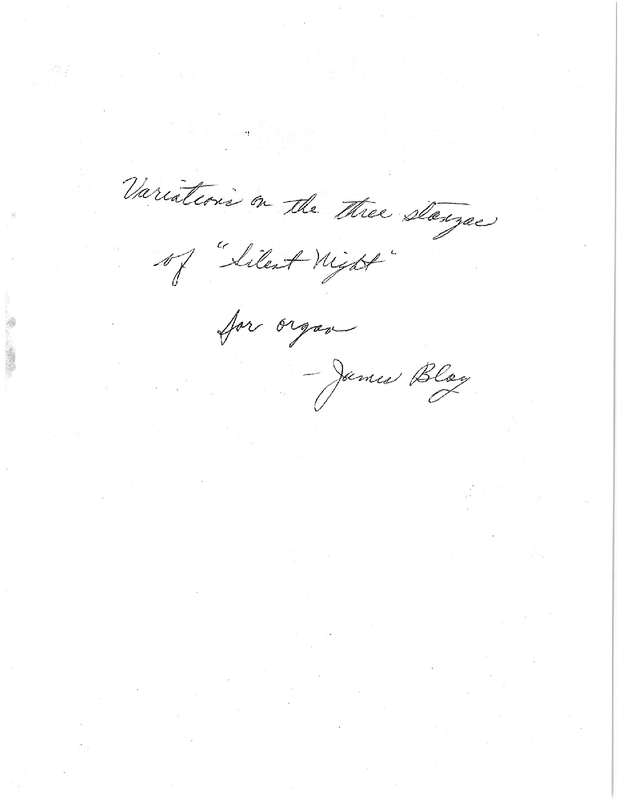 Variations on the three stanzas
of "Silent Night"
for organ
- James Bloy